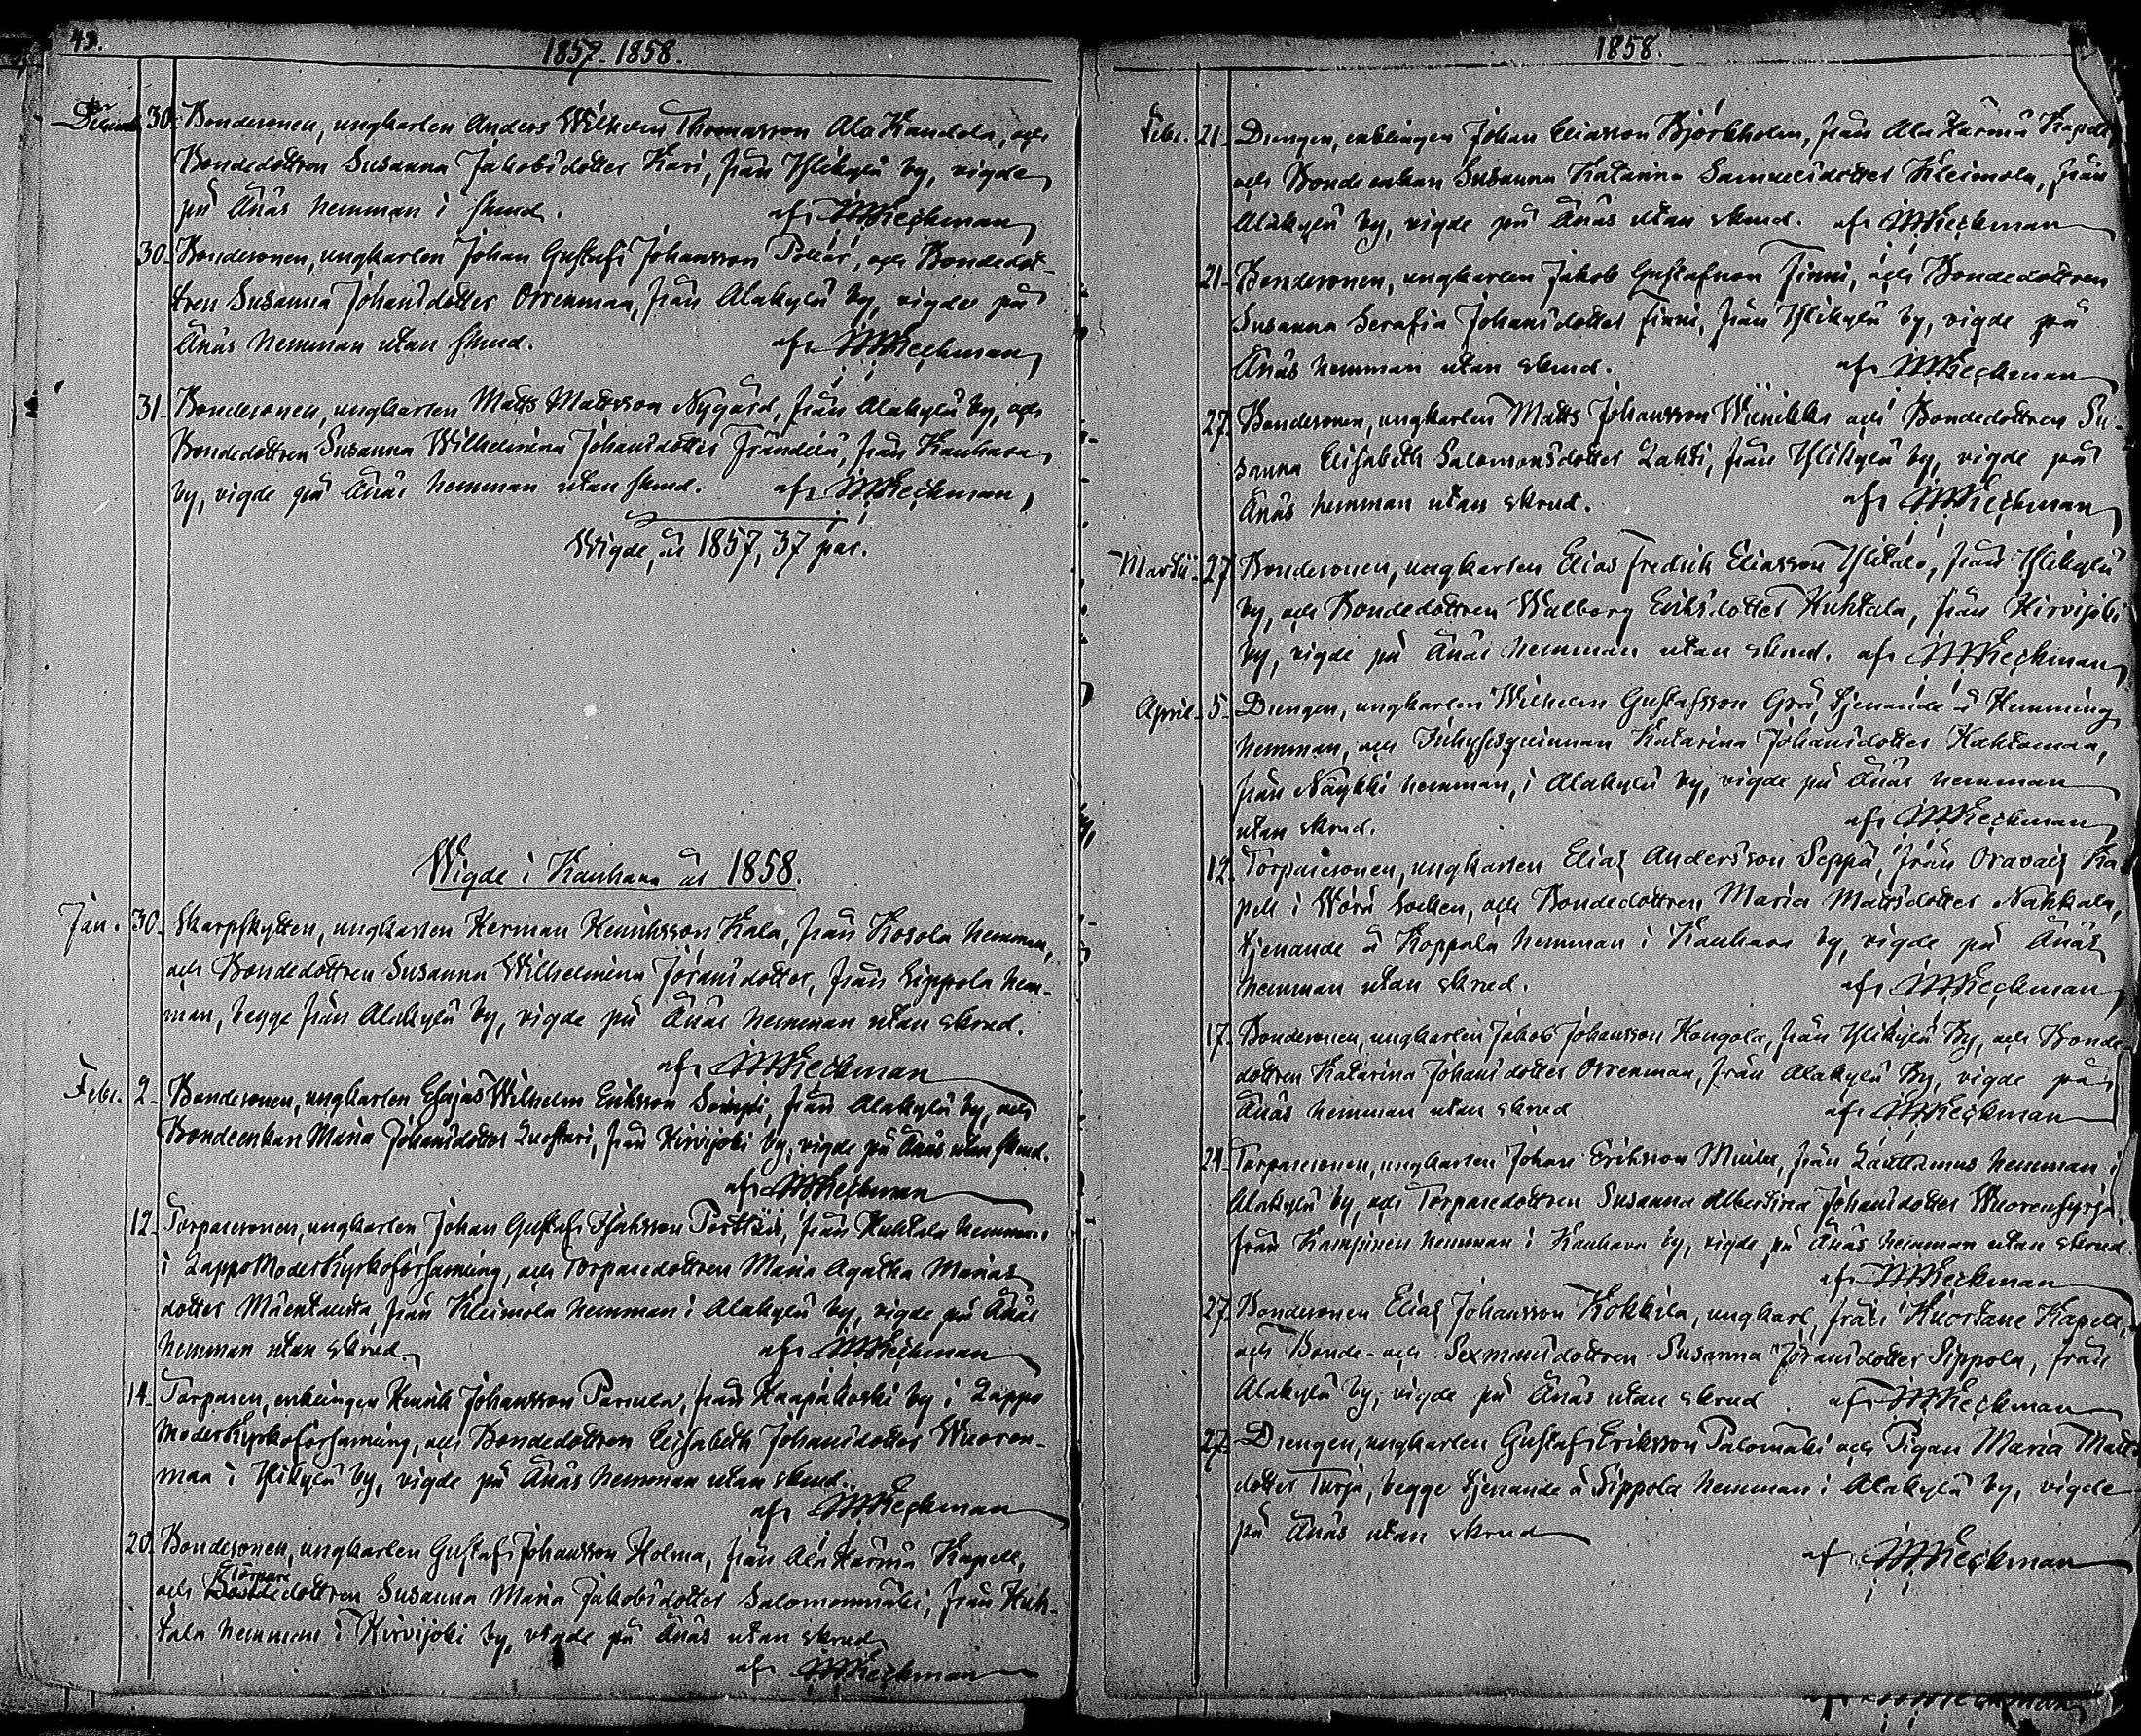 43.
1857-1858.
Decemb. 30. Bondesonen, ungkarlen Anders Wilhelm Thomasson Ala Kandola, och
Bondedottren Susanna Jakobsdotter Kari, från Ylikylä by, vigde
på Ånäs hemman i skrud. af
30. Bondesonen, ungkarlen Johan Gustaf Johansson, och Bondedot-
tren Susanna Johansdotter Orrenmaa, från Alakylä by, vigde på
Ånäs hemman utan skrud. af
31. Bondesonen, ungkarlen Matts Mattsson Nygård, från Alakylä by, och
Bondedottren Susanna Wilhelmina Johansdotter Frändilä, från Kauhava
by, vigde på Ånäs hemman utan skrud. af
Wigde, år 1857, 37 par.
Wigde i Kauhava år 1858.
Jan. 30. Skarpskytten, ungkarlen Herman Henriksson Kala, från Kosola hemman,
och Bondedottren Susanna Wilhelmina Jöransdotter, från Sippola hem-
man, begge från Alakylä by, vigde på Ånäs hemman utan skrud.
af
Febr. 2. Bondesonen, ungkarlen Esajas Wilhelm Eriksson, från Alakylä by, och
Bondeenkan Maria Johansdotter Luostari, från Hirvijoki by, vigde på Ånäs utan skrud.
af
12. Torparesonen, ungkarlen Johan Gustaf Isaksson, från Huhtala hemman
i Lappo Moderkyrkoförsamling, och Torparedottren Maria Agatha Marias
dotter Mäentausta, från Kleimola hemman i Alakylä by, vigde på Ånäs
hemman utan skrud. af
14. Torparen, enklingen Henrik Johansson, från Haapakoski by i Lappo
Moderkyrkoförsamling, och Bondedottren Elisabeth Johansdotter Wuoren-
maa i Ylikylä by, vigde på Ånäs hemman utan skrud.
af
20. Bondesonen, ungkarlen Gustaf Johansson Holma, från Ala Härmä Kapell,
Torpare
och Bondedottren Susanna Maria Jakobsdotter Salomonmäki, från Huh-
tala hemman i Hirvijoki by, vigde på Ånäs utan skrud
af
1858.
Febr. 21. Drengen, enklingen Johan Eliasson Björkholm, från Ala Härmä Kapell,
och Bondeenkan Susanna Katarina Samuelsdotter Kleimola, från
Alakylä by, vigde på Ånäs utan skrud. af
21. Bondesonen, ungkarlen Jakob Gustafsson Finni, och Bondedottren
Susanna Serafia Johansdotter Finni, från Ylikylä by, vigde på
Ånäs hemman utan skrud. af
27. Bondesonen, ungkarlen Matts Johansson Wiinikka och Bondedottren Su-
sanna Elisabeth Salomonsdotter Lahti, från Ylikylä by, vigde på
Ånäs hemman utan skrud. af
Martii. 27. Bondesonen, ungkarlen Elias Fredrik Eliasson Ylitalo, från Ylikylä
by, och Bondedottren Walborg Eriksdotter Huhtala, från Hirvijoki
by, vigde på Ånäs hemman utan skrud. af
April. 5. Drengen, ungkarlen Wilhelm Gustafsson Grå, tjenande å Hemming
hemman, och Inhysesqvinnan Katarina Johansdotter Hahtomaa,
från Näykki hemman, i Alakylä by, vigde på Ånäs hemman
utan skrud. af
12. Torparesonen, ungkarlen Elias Andersson Seppä, från Oravais Ka
pell i Wörå Socken, och Bondedottren Maria Mattsdotter Nahkala,
tjenande å Koppala hemman i Kauhava by, vigde på Ånäs
hemman utan skrud. af
17. Bondesonen, ungkarlen Jakob Johansson Kangola, från Ylikylä By, och Bonde-
dottren Katarina Johansdotter Orrenmaa, från Alakylä By, vigde på
Ånäs hemman utan skrud af
24. Torparesonen, ungkarlen Johan Eriksson, från hemman i
Alakylä by, och Torparedottren Susanna Albertina Johansdotter Wuorensyrjä,
från Kampinen hemman i Kauhava by, vigde på Ånäs hemman utan skrud.
af
27. Bondesonen Elias Johansson Kokkila, ungkarl, från Kuortane Kapell,
och Bonde- och Sexmansdottren Susanna Jöransdotter Sippola, från
Alakylä by; vigde på Ånäs utan skrud. af
27. Drengen, ungkarlen Gustaf Eriksson Palomäki och Pigan Maria Matts-
dotter Turja, begge tjenande å Sippola hemman i Alakylä by, vigde
på Ånäs utan skrud
af